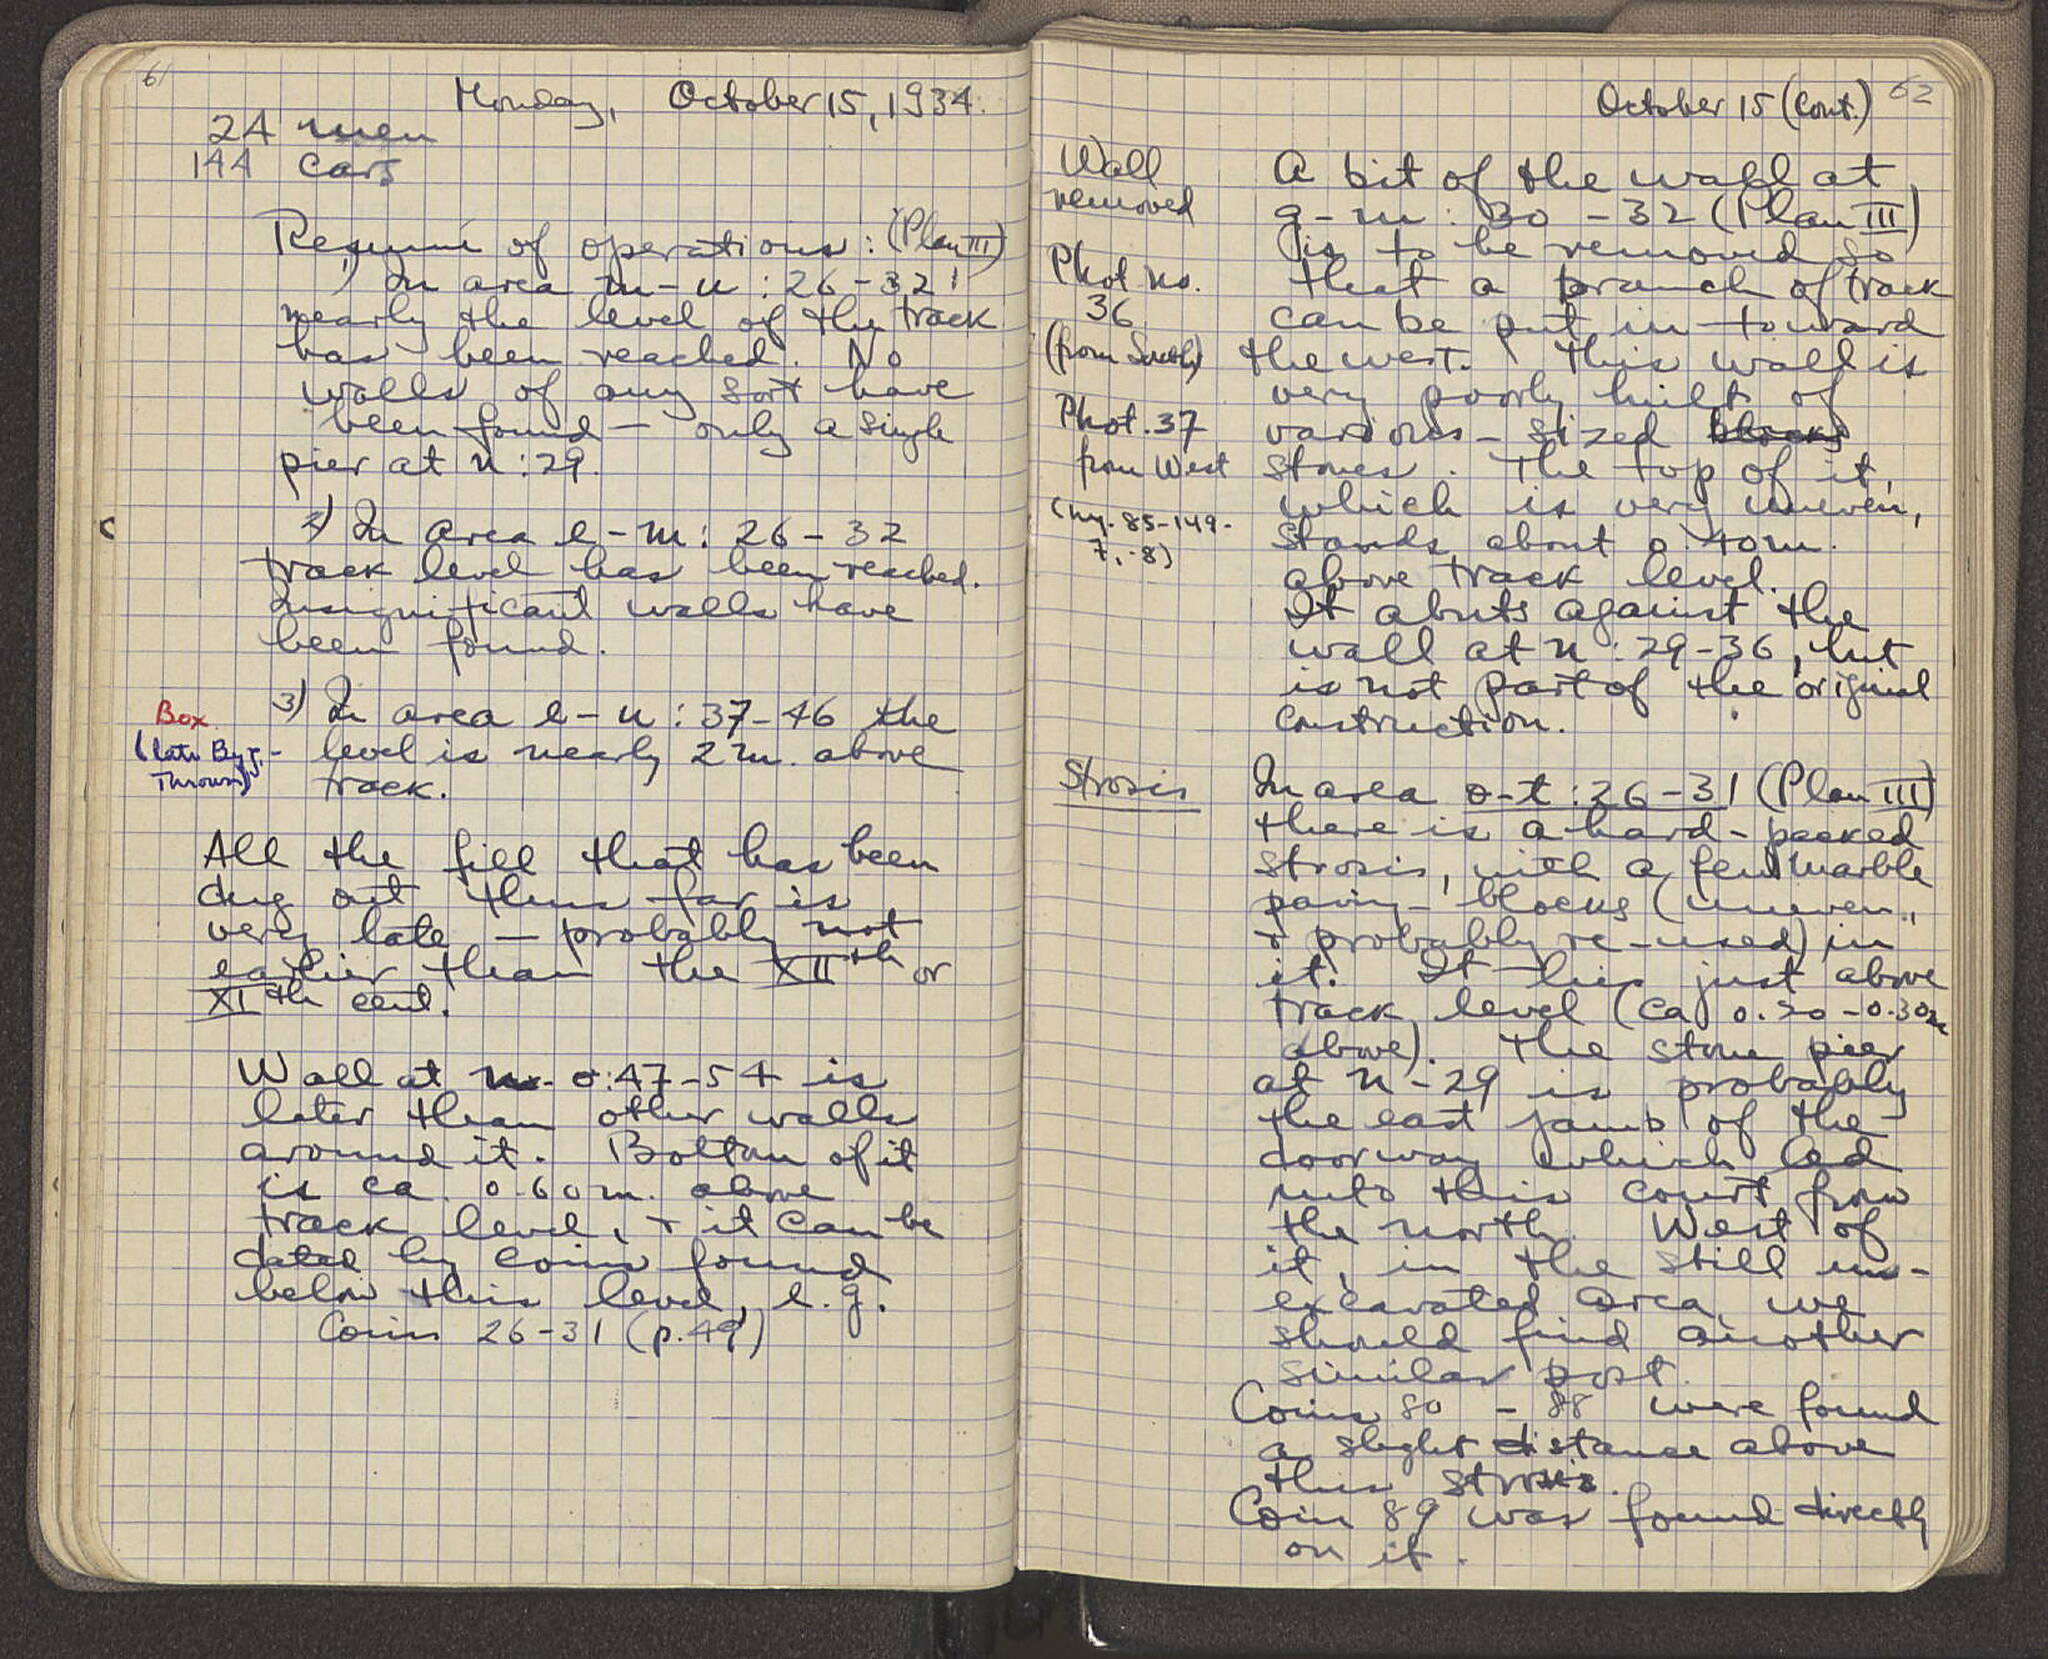 61
Monday, October 15, 1934.
24 men
144 cars
Resumé of operations: (Plan III)
1) In area m-u: 26-32
nearly the level of the track
has been reached. No
walls of any sort have
been found — only a single
pier at n:29.
2) In area e-m: 26-32
track level has been reached.
Insignificant walls have
been found.
3) In area e-u: 37-46 the
level is nearly 2 m. above
track.
Box
(late Byz. -
Thrown)
All the fill that has been
dug out thus far is
very late — probably not
earlier than the XIIth or
XIth cent.
Wall at o:47-54 is
later than other walls
around it. Bottom of it
is ca. 0.60 m. above
track level, + it can be
dated by coins found
below this level, e.g.
Coins 26-31 (p.49)
October 15 (Cont.) 62
Wall
removed
Phot no.
36
(from South)
Phot. 37
from West
85-149-
7, -8)
A bit of the wall at
g-m: 30-32 (Plan III)
is to be removed so
that a branch of track
can be put in toward
the west. This wall is
very poorly built of
various-sized blocks
stones. The top of it,
which is very uneven,
stands about 0.40 m.
above track level.
It abuts against the
wall at n:29-36, but
is not part of the original
construction.
Strosis
In area o-t:26-31 (Plan III)
there is a hard-packed
strosis, with a few marble
paving-blocks (uneven,
+ probably re-used) in
it. It lies just above
track level (ca 0.20-0.30m
above). The stone pier
at n-29 is probably
the east jamb of the
doorway which led
into this court from
the north. West of
it, in the still un-
excavated area, we
should find another
similar post.
Coins 80 - 88 were found
a slight distance above
this strosis.
Coin 89 was found directly
on it.